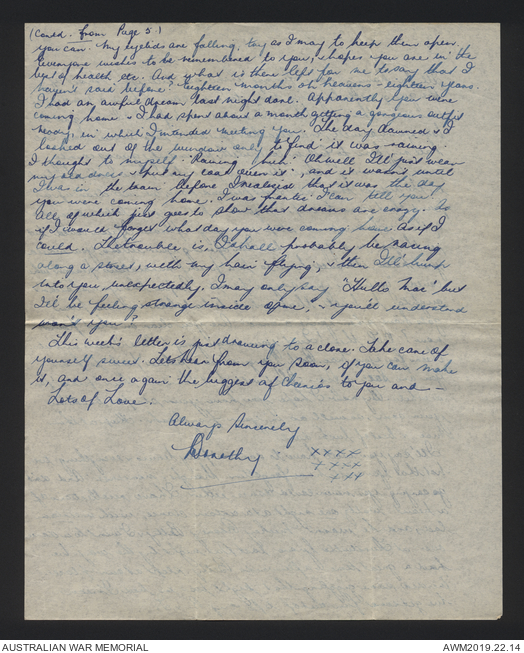 (Contd. from Page 5.)
you can. My eyelids are falling, try as I may to keep them open.
Everyone wishes to be remembered to you, & hopes you are in the
best of health etc. And what is there left for me to say that I
haven't said before. Eighteen months oh heavens - eighteen years.
I had an awful dream last night darl. Apparently you were
coming home & I had spent about a month getting a gorgeous outfit
ready, in which I intended meeting you. The day dawned & I
looked out of the window only to find it was raining.
I thought to myself "Raining, Ah well I'll just wear
my old dress & put my coat over it", and it wasn't until
I was in the train before I realised that it was the day
you were coming home. I was frantic I can tell you.
All of which just goes to show that dreams are crazy. As
if I would forget what day you were coming home. As if I
could. The trouble is I shall probably be racing
along a street, with my hair flying, & then I'll bump
into you unexpectedly. I may only say "Hullo Mac" but
I'll be feeling strange inside & you'll understand
won't you?
This week's letter is just drawing to a close. Take care of
yourself sweet. Lets hear from you soon, if you can make
it, and once again the biggest of Cheerios to you and -
Lots of Love.
Always Sincerely
Dorothy
xxxx
xxxx
xxx
AUSTRALIAN WAR MEMORIAL
AWM2019.22.14